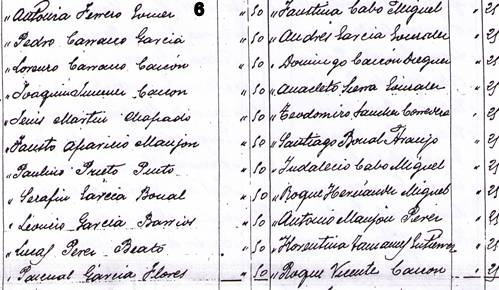 " Antonia Ferrero Gomer 6 " 50 " Faustina Cabo Miguel " 25
" Pedro Carrasco García " 50 " Andrés García Gonzalez " 25
" Lorenzo Carrasco Cascón " 50 " Domingo Cascón " 25
" Joaquin Cascon " 50 " Anacleto Sierra Gonzalez " 25
" Luis Martin Chapado " 50 " Teodomiro Sanchez " 25
" Fausto Aparicio Manjon " 50 " Santiago Bonal Araujo " 25
" Paulino Prieto Pinto " 50 " Indalecio Cabo Miguel " 25
" Serafin García Bonal " 50 " Roque Hernández Miguel " 25
" Leoncio García Barrios " 50 " Antonio Manjón Perez " 25
" Lucas Perez Beato " 50 " Florentina Gutierrez " 25
" Pascual García Flores " 50 " Roque Vicente Cascon " 25